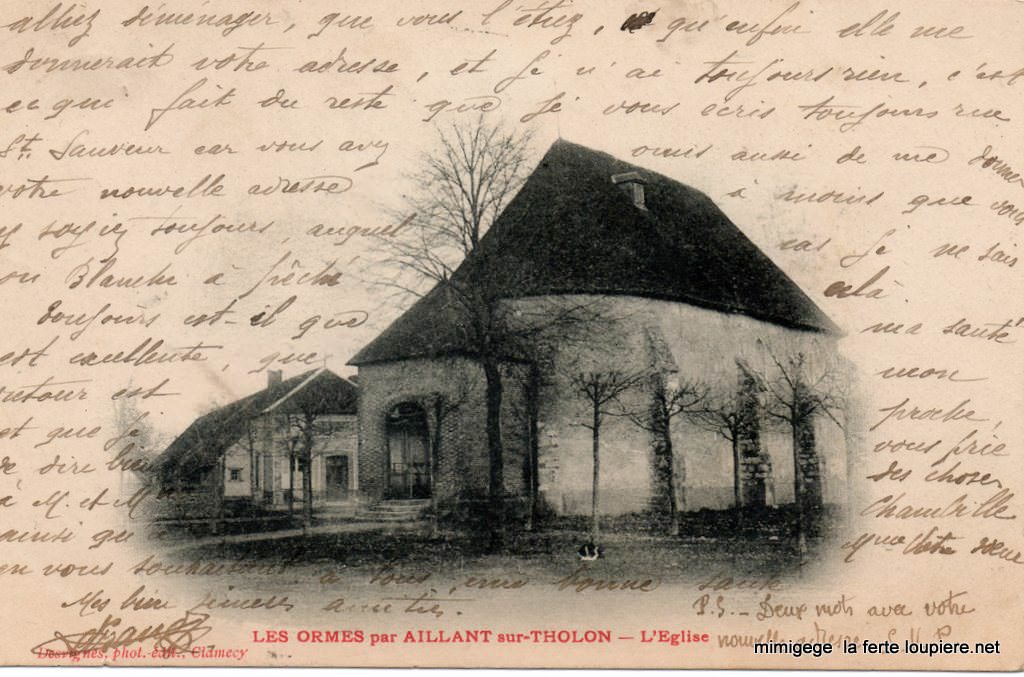 alliez déménager, que vous l'étiez, et qu'enfin elle me
donnerait votre adresse, et je n'ai toujours rien, c'est
ce qui fait du reste que je vous écris toujours rue
St. Sauveur car vous avez omis aussi de me donner
votre nouvelle adresse à moins que vous
y soyiez toujours, auquel cas je ne sais
ou Blanche à pêché celà.
toujours est-il que ma santé
est excellente, que mon
retour est proche,
et que je vous prie
de dire bien des choses
à M. et M Chambille
ainsi qu Votre sœur
en vous souhaitant à tous, une bonne santé
Mes bien sincères amitiés.
P.S. _ Deux mots avec votre
nouvelle adresse S.V.P.
LES ORMES par AILLANT sur-THOLON — L'Eglise
Desvignes, phot.-édit., Clamecy
mimigege la ferte loupiere.net